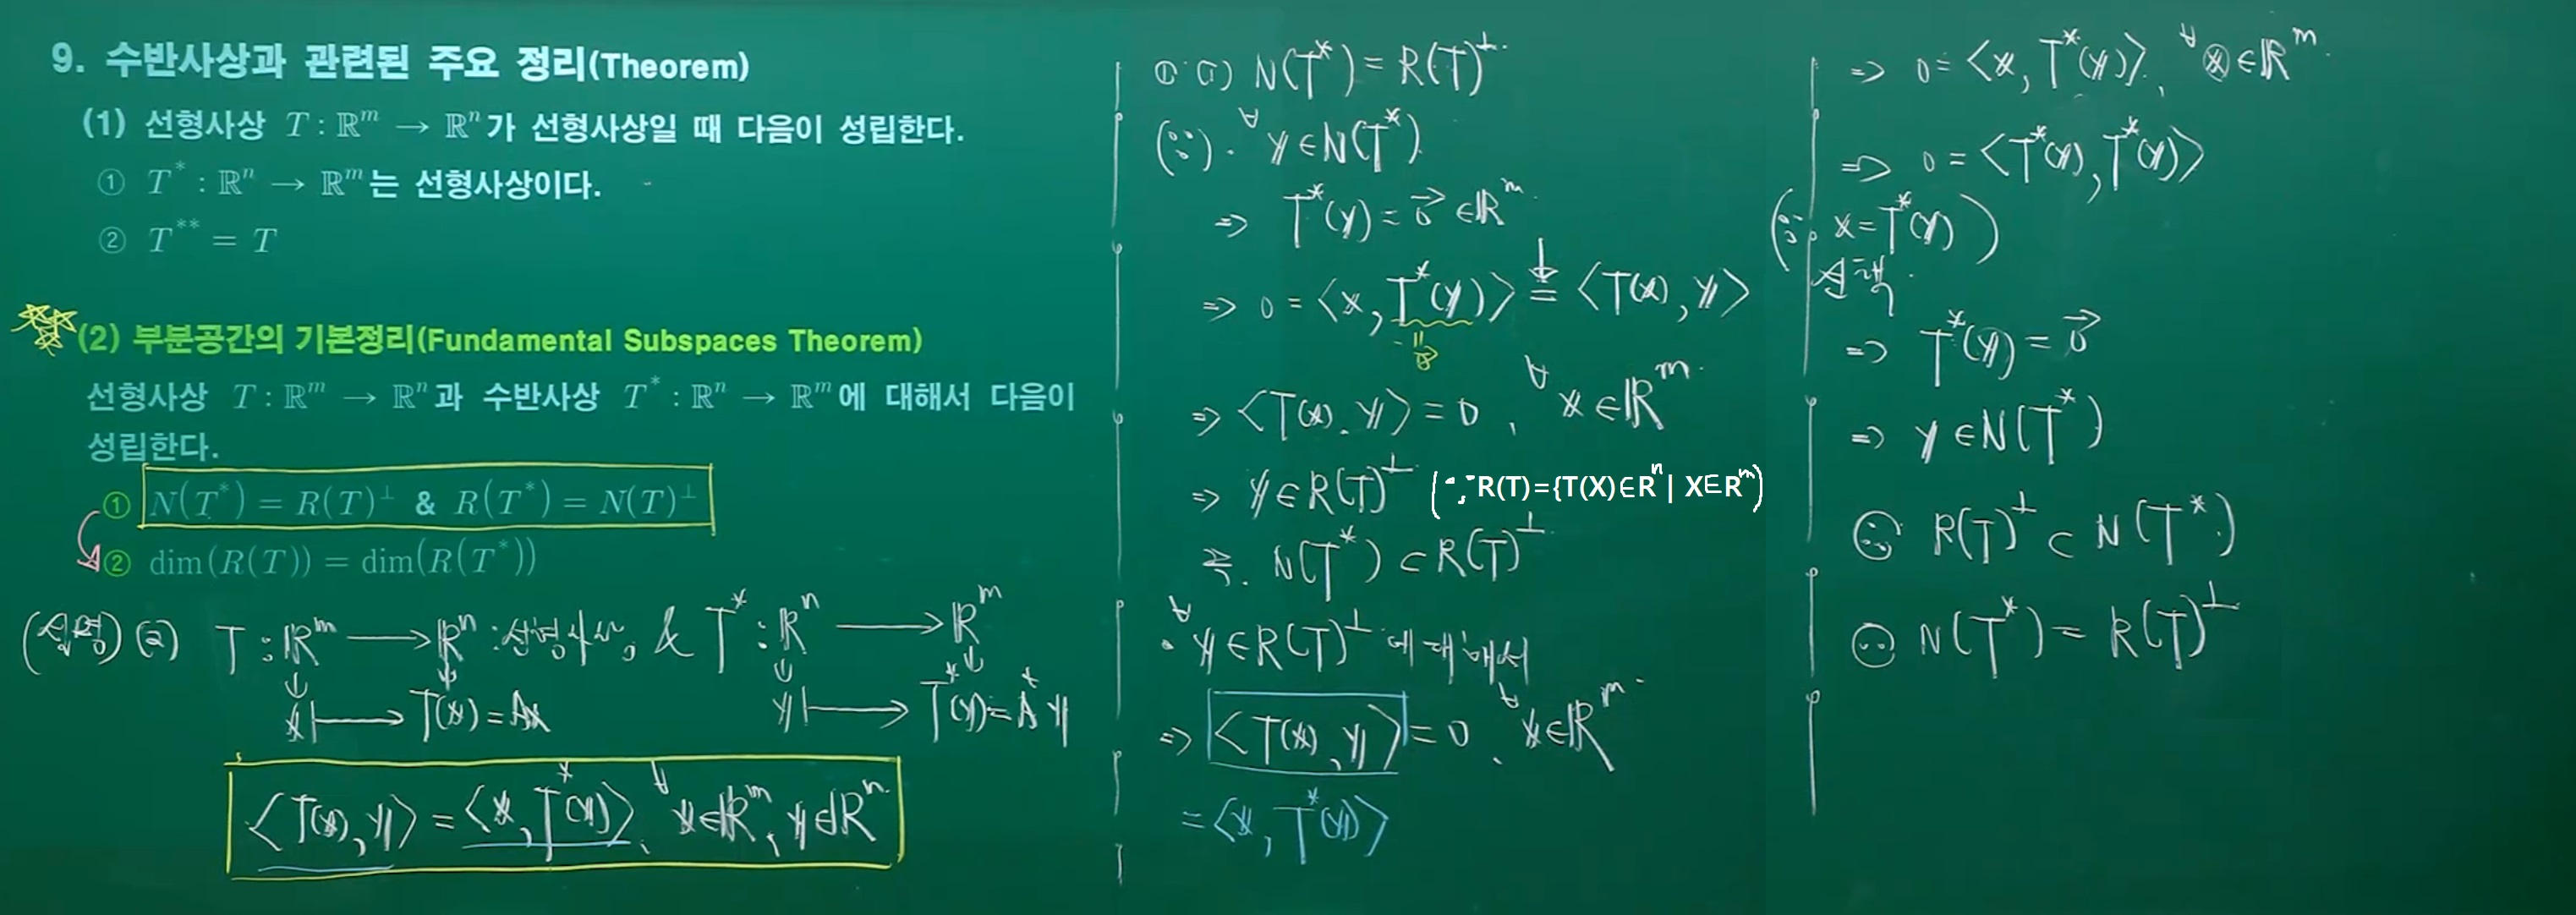 9. 수반사상과 관련된 주요 정리(Theorem)
(1) 선형사상 T : ℝᵐ → ℝⁿ가 선형사상일 때 다음이 성립한다.
① T* : ℝⁿ → ℝᵐ는 선형사상이다.
② T** = T
(2) 부분공간의 기본정리(Fundamental Subspaces Theorem)
선형사상 T : ℝᵐ → ℝⁿ과 수반사상 T* : ℝⁿ → ℝᵐ에 대해서 다음이
성립한다.
① N(T*) = R(T)^⊥ & R(T*) = N(T)^⊥
② dim(R(T)) = dim(R(T*))
(설명) (2) T : ℝᵐ → ℝⁿ : 선형사상, & T* : ℝⁿ → ℝᵐ
x ↦ T(x) = Ax y ↦ T*(y) = A*y
<T(x), y> = <x, T*(y)>, ∀x∈ℝᵐ, y∈ℝⁿ
① (i) N(T*) = R(T)^⊥
(∵) · ∀y∈N(T*)
⇒ T*(y) = 0⃗ ∈ℝᵐ
⇒ 0 = <x, T*(y)> = <T(x), y>
= 0⃗
⇒ <T(x), y> = 0, ∀x∈ℝᵐ
⇒ y∈R(T)^⊥ (∵ R(T)={T(X)∈Rⁿ | X∈Rᵐ})
즉, N(T*) ⊂ R(T)^⊥
· ∀y∈R(T)^⊥에 대해서
⇒ <T(x), y> = 0, ∀x∈ℝᵐ
= <x, T*(y)>
⇒ 0 = <x, T*(y)>, ∀x∈ℝᵐ
⇒ 0 = <T*(y), T*(y)>
(∵ x = T*(y))
선택
⇒ T*(y) = 0⃗
⇒ y∈N(T*)
∴ R(T)^⊥ ⊂ N(T*)
∴ N(T*) = R(T)^⊥